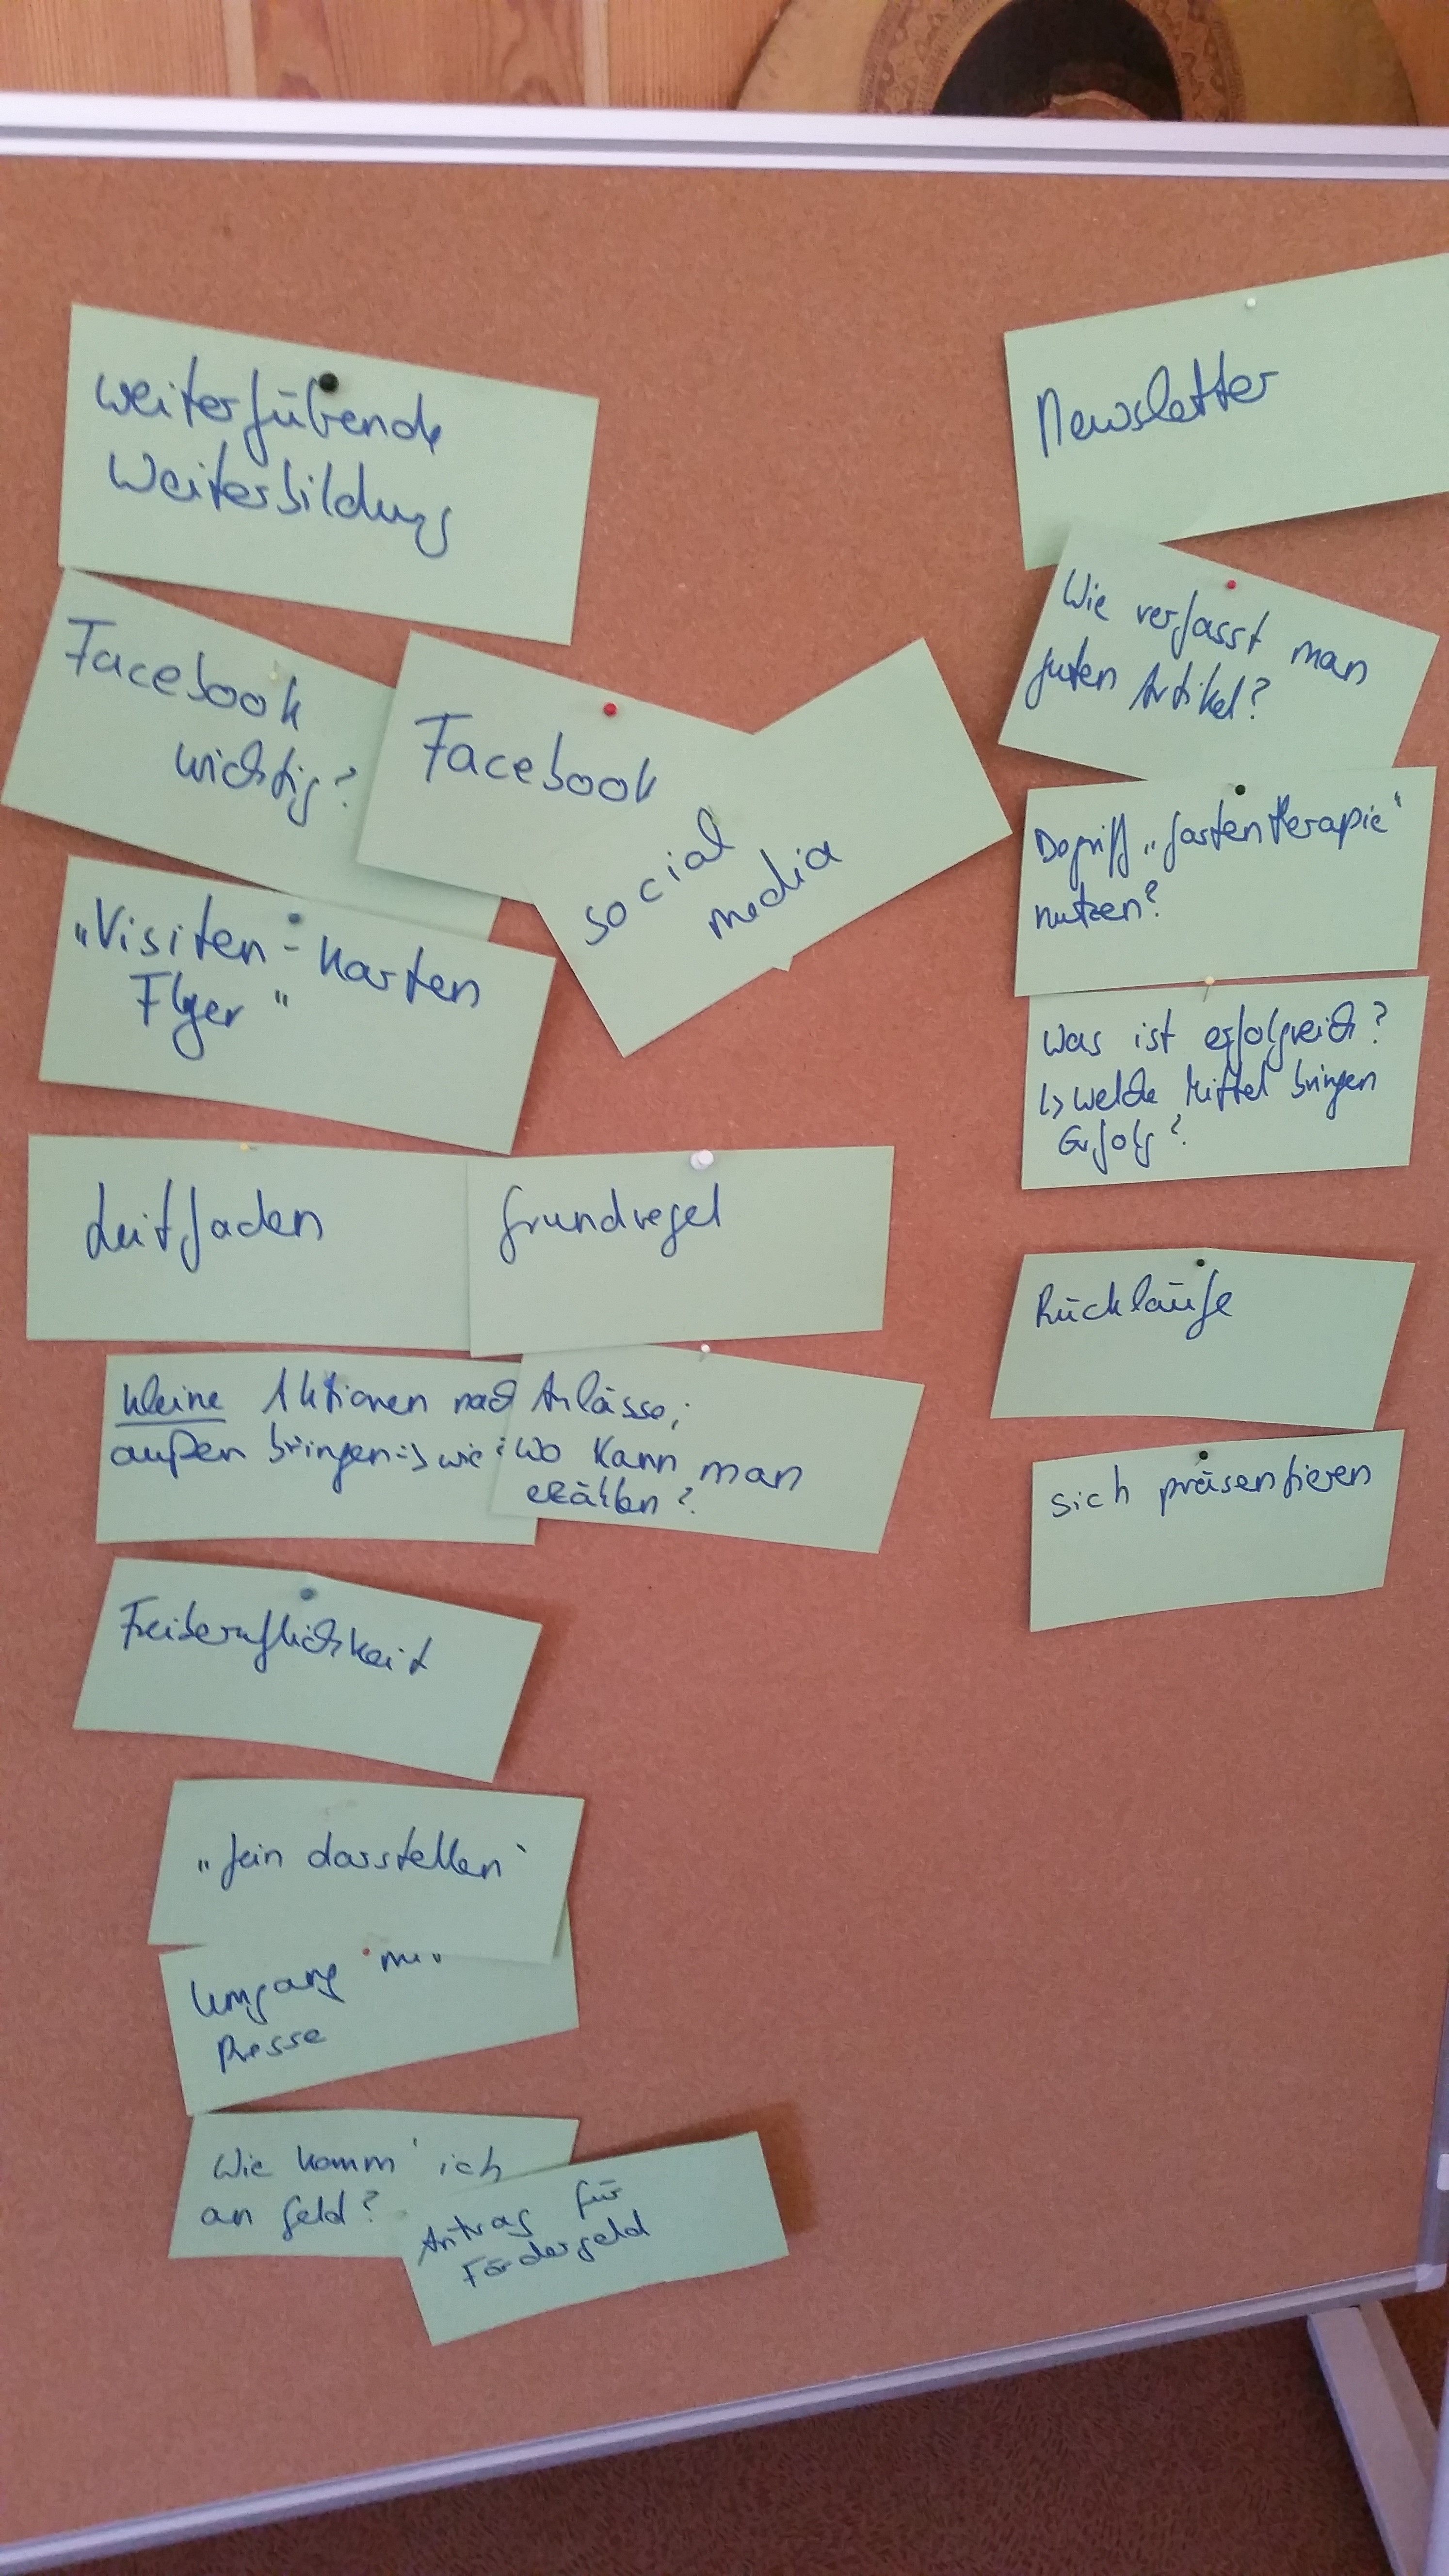 weiterführende
Weiterbildung
Facebook
wichtig?
Facebook
social
media
„Visiten-Karten
Flyer"
Leitfaden
Grundregel
kleine Aktionen nach
außen bringen => wie?
Anlässe;
wo kann man
erzählen?
Freiberuflichkeit
„fein darstellen"
Umgang mit
Presse
Wie komm' ich
an Geld?
Antrag für
Fördergeld
Newsletter
Wie verfasst man
guten Artikel?
Begriff „Gartentherapie"
nutzen?
Was ist erfolgreich?
↳ Welche Mittel bringen
Erfolg?
Rückläufe
sich präsentieren